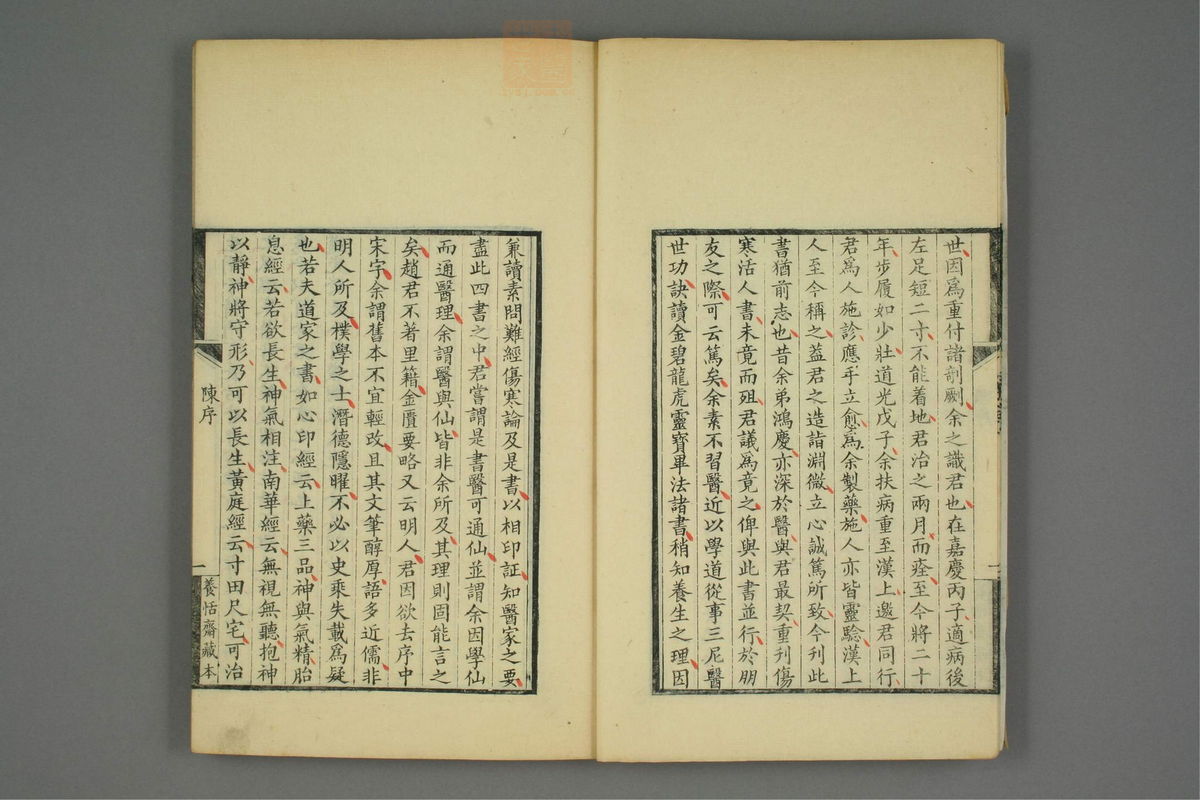 世因爲重付諸剞劂余之識君也在嘉慶丙子適病後
左足短二寸不能着地君治之兩月而痊至今將二十
年步履如少壯道光戊子余扶病重至漢上邀君同行
君爲人施診應手立愈爲余製藥施人亦皆靈驗漢上
人至今稱之蓋君之造詣淵微立心誠篤所致今刊此
書猶前志也昔余弟鴻慶亦深於醫與君最契重刊傷
寒活人書未竟而殂君議爲竟之俾與此書並行於朋
友之際可云篤矣余素不習醫近以學道從事三尼醫
世功訣讀金碧龍虎靈寶畢法諸書稍知養生之理因
兼讀素問難經傷寒論及是書以相印証知醫家之要
盡此四書之中君嘗謂是書醫可通仙並謂余因學仙
而通醫理余謂醫與仙皆非余所及其理則固能言之
矣趙君不著里籍金匱要略又云明人君因欲去序中
宋字余謂舊本不宜輕改且其文筆醇厚語多近儒非
明人所及樸學之士潛德隱曜不必以史乘失載爲疑
也若夫道家之書如心印經云上藥三品神與氣精胎
息經云若欲長生神氣相注南華經云無視無聽抱神
以靜神將守形乃可以長生黃庭經云寸田尺宅可治
陳序
一
養恬齋藏本